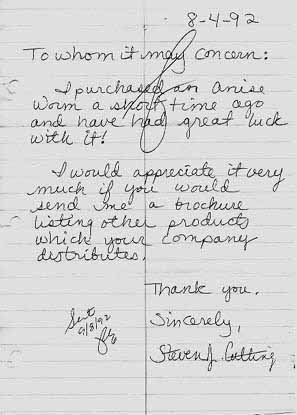 8-4-92
To whom it may concern:
I purchased an anise
worm a short time ago
and have had great luck
with it!
I would appreciate it very
much if you would
send me a brochure
listing other products
which your company
distributes.
Thank you.
Sincerely,
Steven J. Cutting
Sent
9/8/92